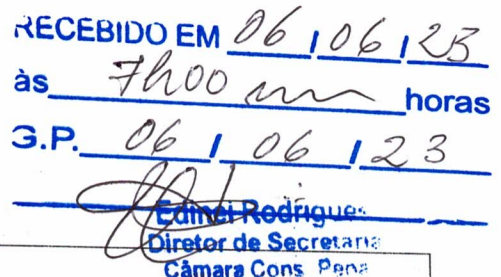 RECEBIDO EM 06 / 06 / 23
às 7h00 horas
G.P. 06 / 06 / 23
Edinei Rodrigues
Diretor de Secretaria
Câmara Cons. Pena